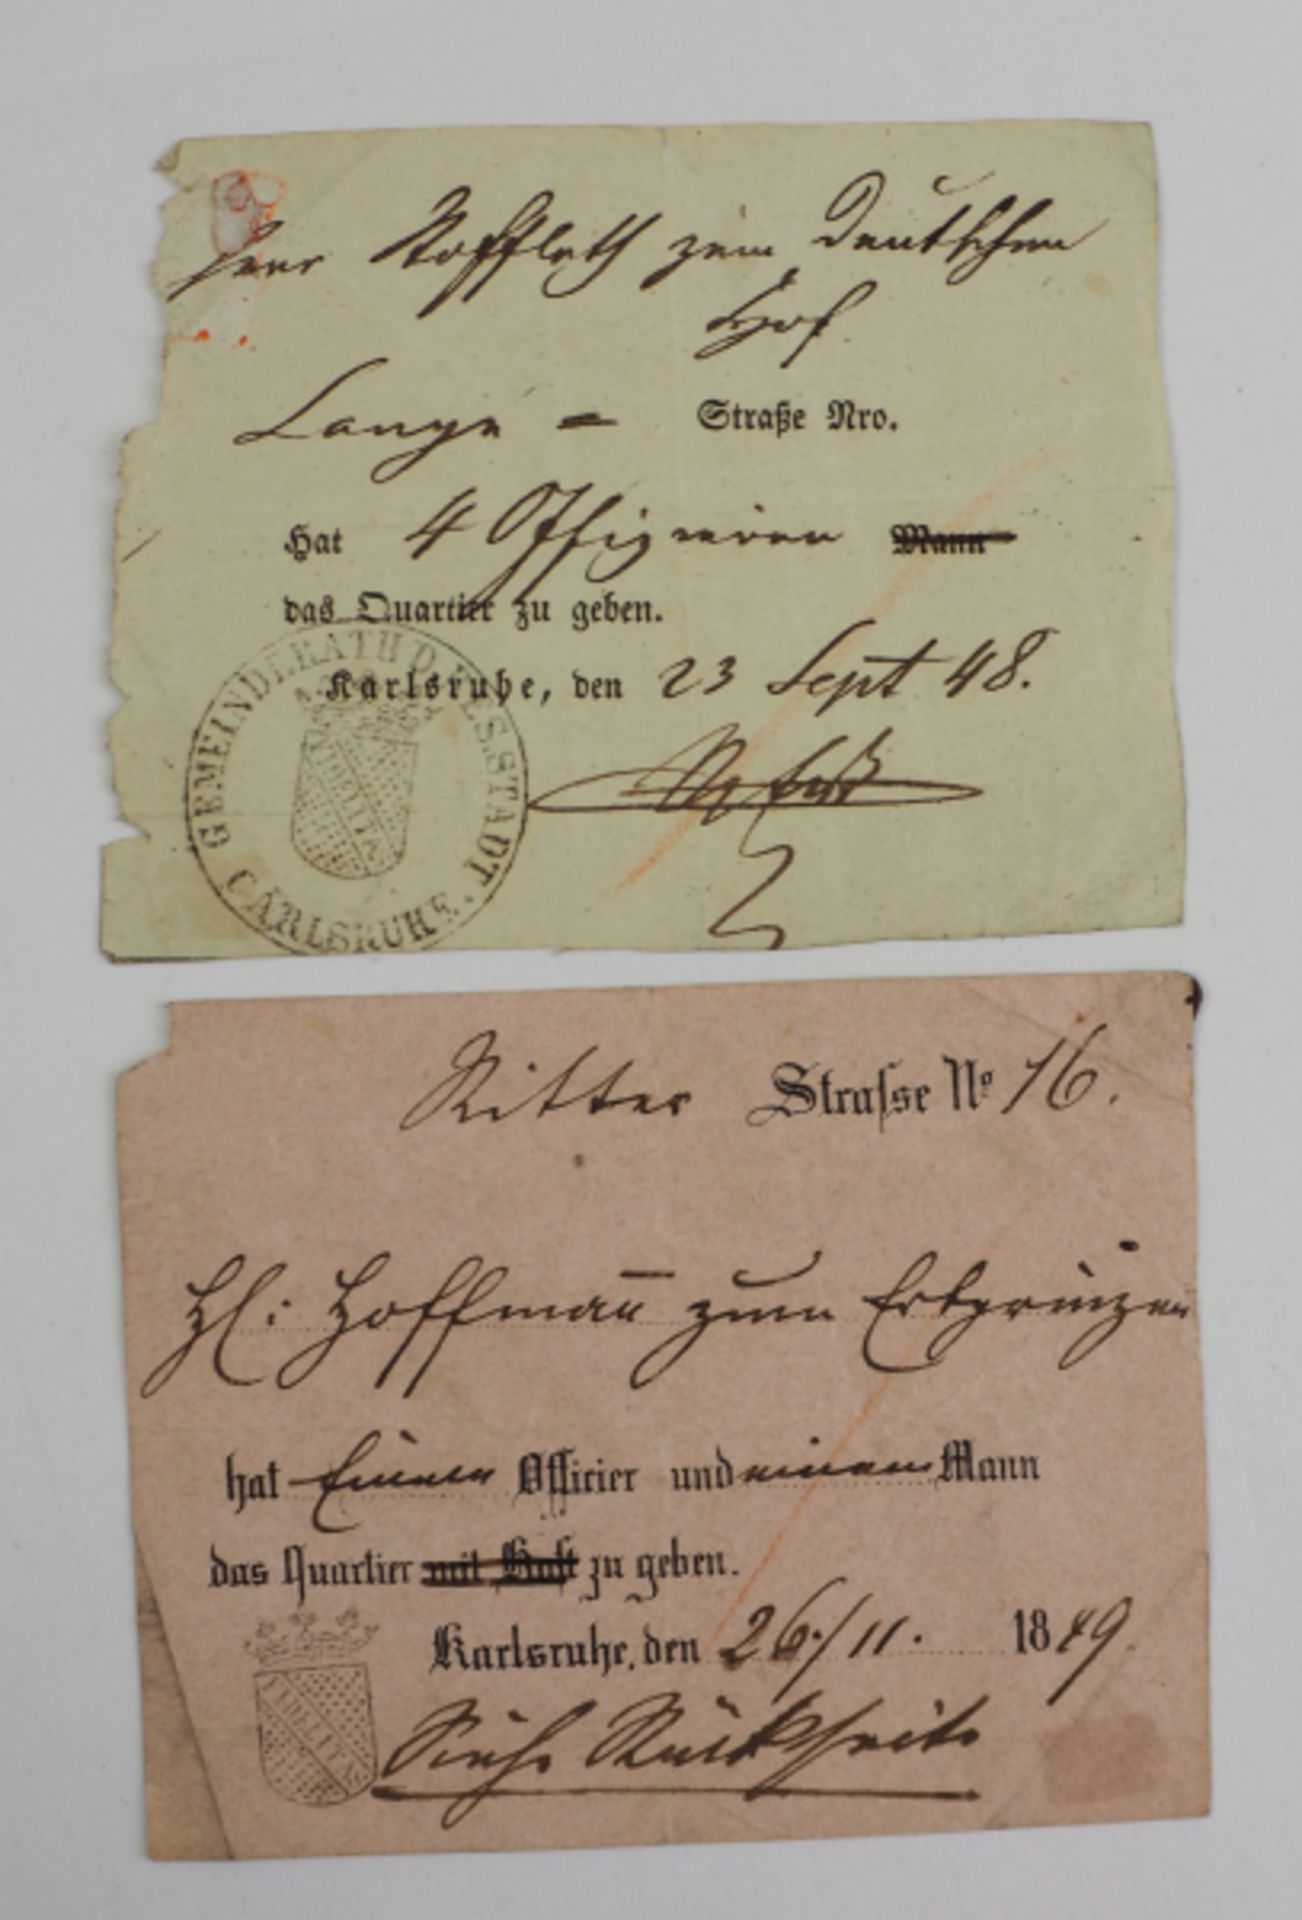 Herr Stoffleth zum Deutschen
Hof
Lange - Straße Nro.
Hat 4 Offizieren Mann
das Quartier zu geben.
Karlsruhe, den 23 Sept 48.
GEMEINDERATH D. RES. STADT
CARLSRUHE.
FIDELITAS
Ritter Strasse No 16.
H: Hoffmañ zum Erbprinzen
hat Einem Officier und einem Mann
das Quartier mit Kost zu geben.
Karlsruhe, den 26./11. 1849.
FIDELITAS
Siehe Rückseite